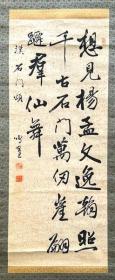 想見楊孟文逸翰照
千古石門萬仞崖翩
蹮群仙舞
漢石门頌